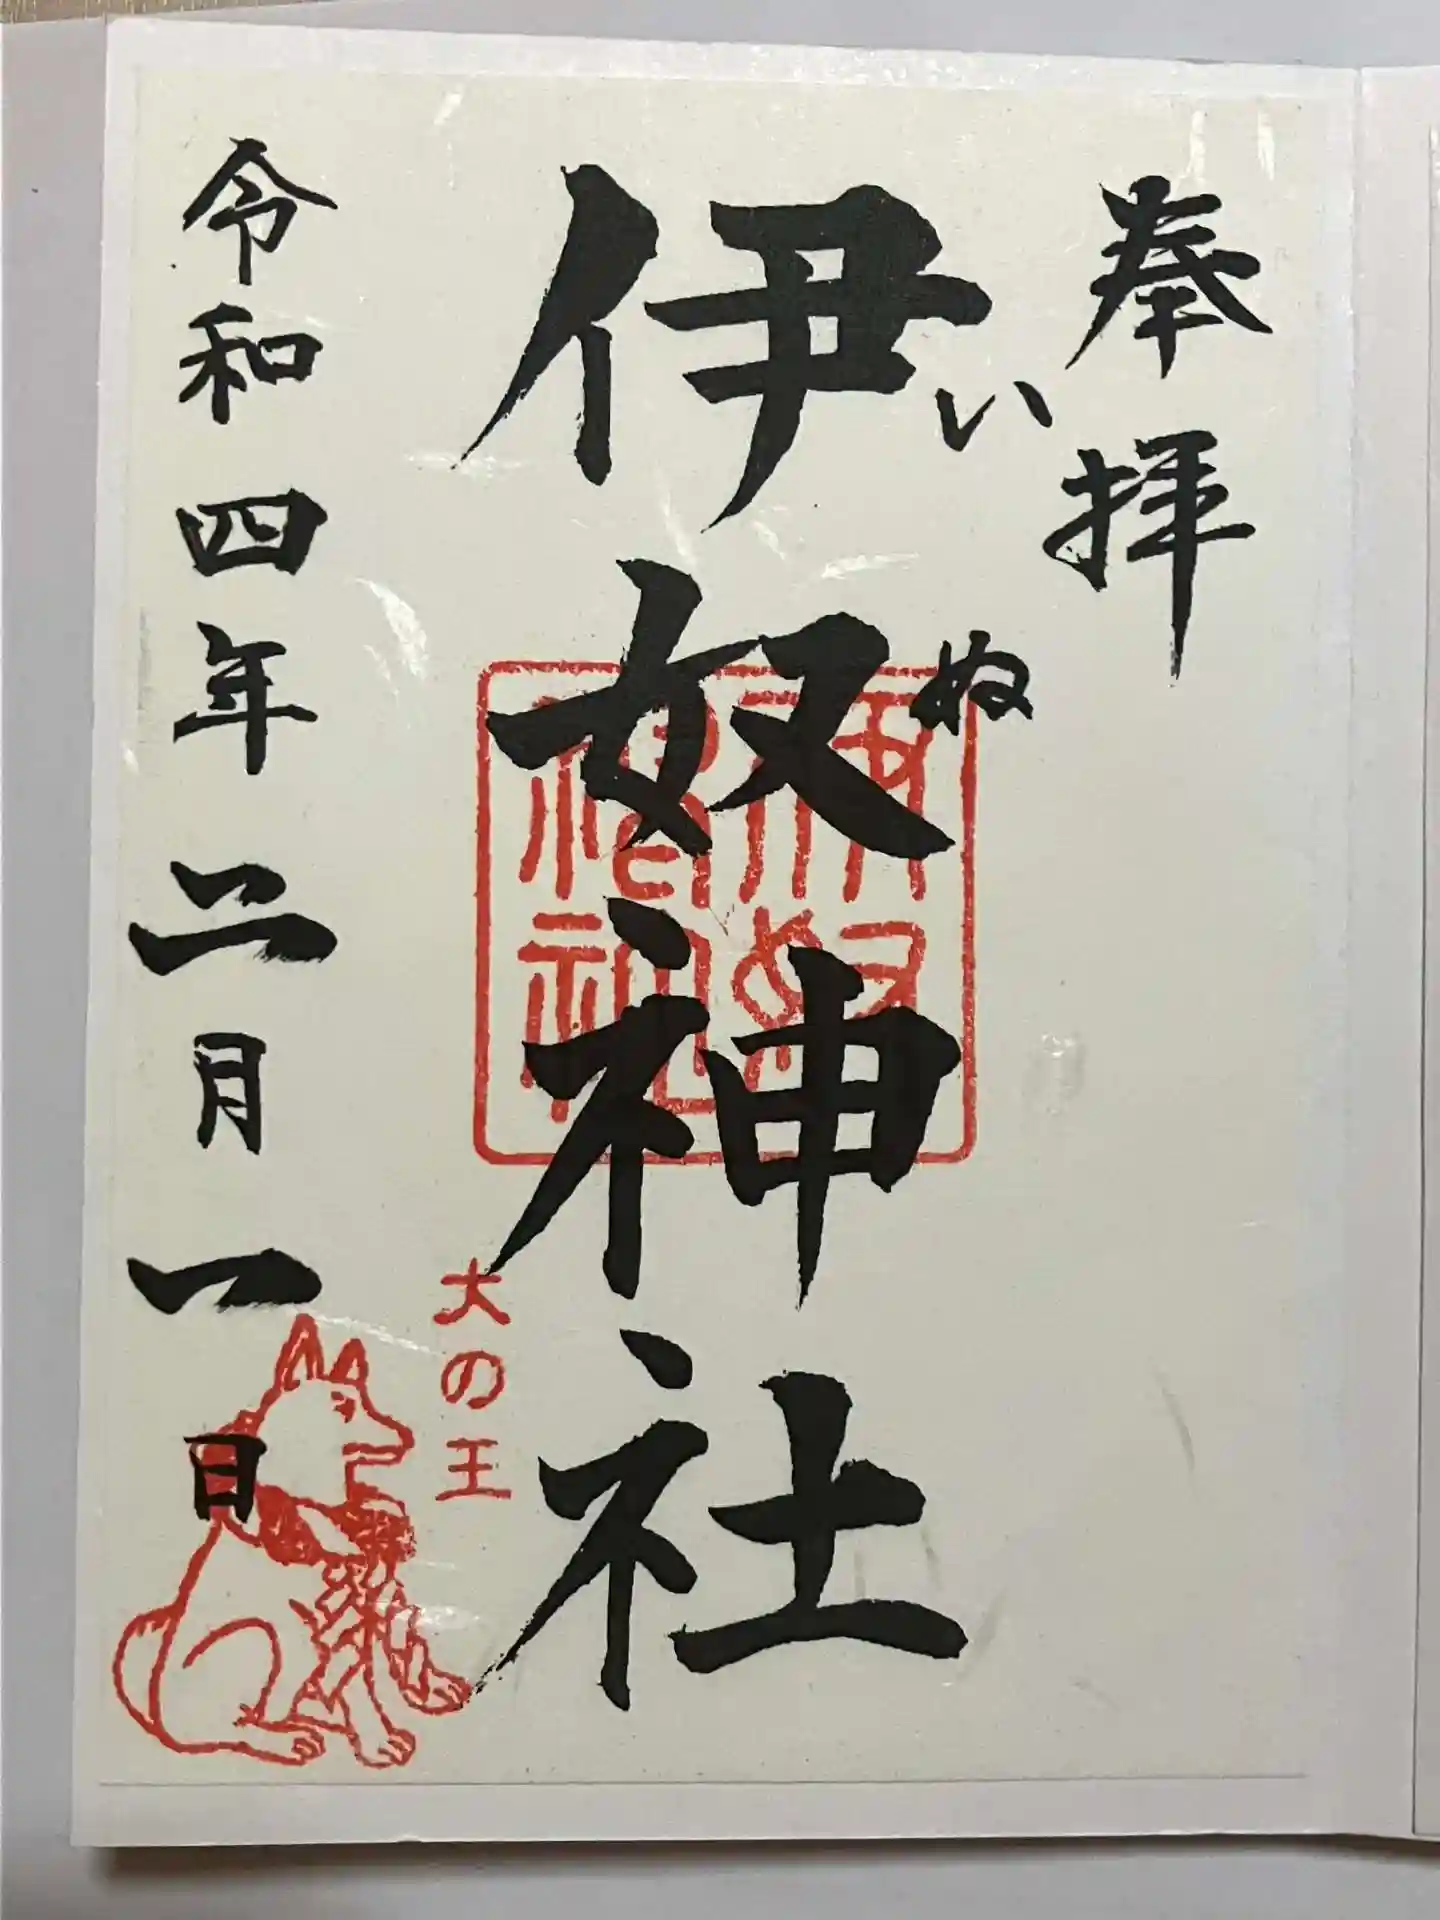 奉拝
いぬ
伊奴神社
伊奴
神社
犬の王
令和四年二月一日